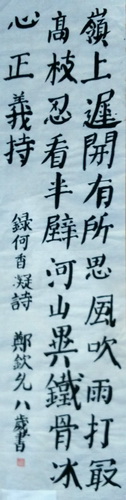 嶺上遲開有所思風吹雨打最
高枝忍看半壁河山異鐵骨冰
心正義持
録何香凝詩 鄭欽允八歲書